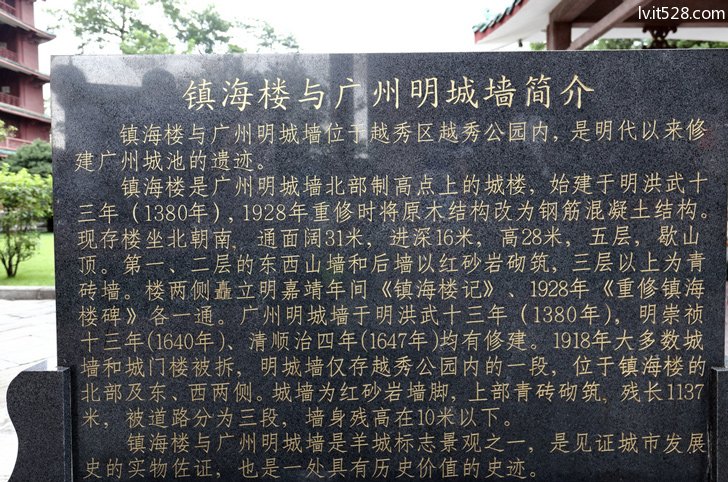 lvit528.com
镇海楼与广州明城墙简介
镇海楼与广州明城墙位于越秀区越秀公园内，是明代以来修
建广州城池的遗迹。
镇海楼是广州明城墙北部制高点上的城楼，始建于明洪武十
三年（1380年），1928年重修时将原木结构改为钢筋混凝土结构。
现存楼坐北朝南，通面阔31米，进深16米，高28米，五层，歇山
顶。第一、二层的东西山墙和后墙以红砂岩砌筑，三层以上为青
砖墙。楼两侧矗立明嘉靖年间《镇海楼记》、1928年《重修镇海
楼碑》各一通。广州明城墙于明洪武十三年（1380年），明崇祯
十三年(1640年)、清顺治四年(1647年)均有修建。1918年大多数城
墙和城门楼被拆，明城墙仅存越秀公园内的一段，位于镇海楼的
北部及东、西两侧。城墙为红砂岩墙脚，上部青砖砌筑，残长1137
米，被道路分为三段，墙身残高在10米以下。
镇海楼与广州明城墙是羊城标志景观之一，是见证城市发展
史的实物佐证，也是一处具有历史价值的史迹。